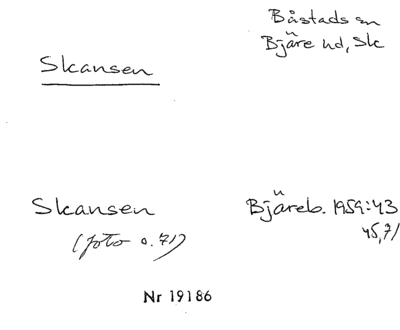 Skansen
Båstads sn
Bjäre hd, Sk
Skansen
(foto s. 71)
Bjäreb. 1959:43
45, 71
Nr 19186